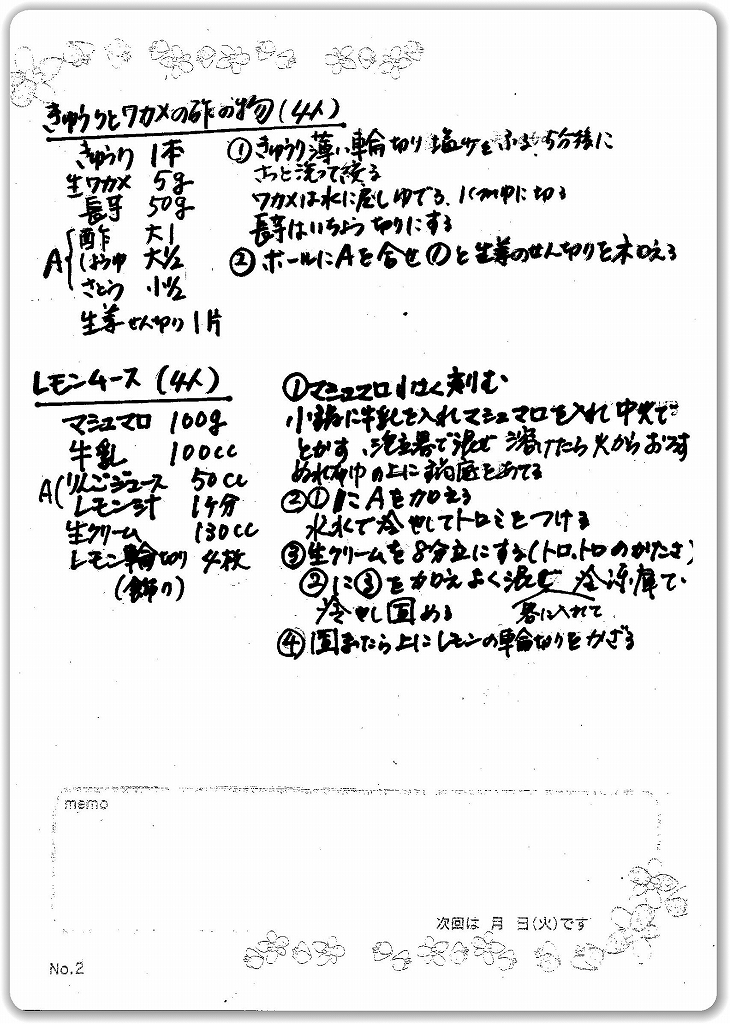 きゅうりとワカメの酢の物(4人)
きゅうり 1本
生ワカメ 5g
長芋 50g
A 酢 大1
しょうゆ 大1/2
さとう 小1/2
生姜せん切り 1片
①きゅうり薄い輪切り 塩少をふる、5分後に
さっと洗って絞る
ワカメは水に戻しゆでる、1cm巾に切る
長芋はいちょう切りにする
②ボールにAを合せ①と生姜のせん切りを和える
レモンムース(4人)
マシュマロ 100g
牛乳 100cc
A りんごジュース 50cc
レモン汁 1ケ分
生クリーム 130cc
レモン輪切り 4枚
(飾り)
①マシュマロ小さく刻む
小鍋に牛乳を入れマシュマロを入れ中火で
とかす、泡立器で混ぜ 溶けたら火からおろす
ぬれ布巾の上に鍋底をあてる
②①にAを加える
氷水で冷やしてトロミをつける
③生クリームを8分立にする(トロ、トロのかたさ)
②に③を加えよく混ぜ 冷凍庫で
冷やし固める 器に入れて
④固まったら上にレモンの輪切りをかざる
memo
次回は 月 日(火)です
No.2